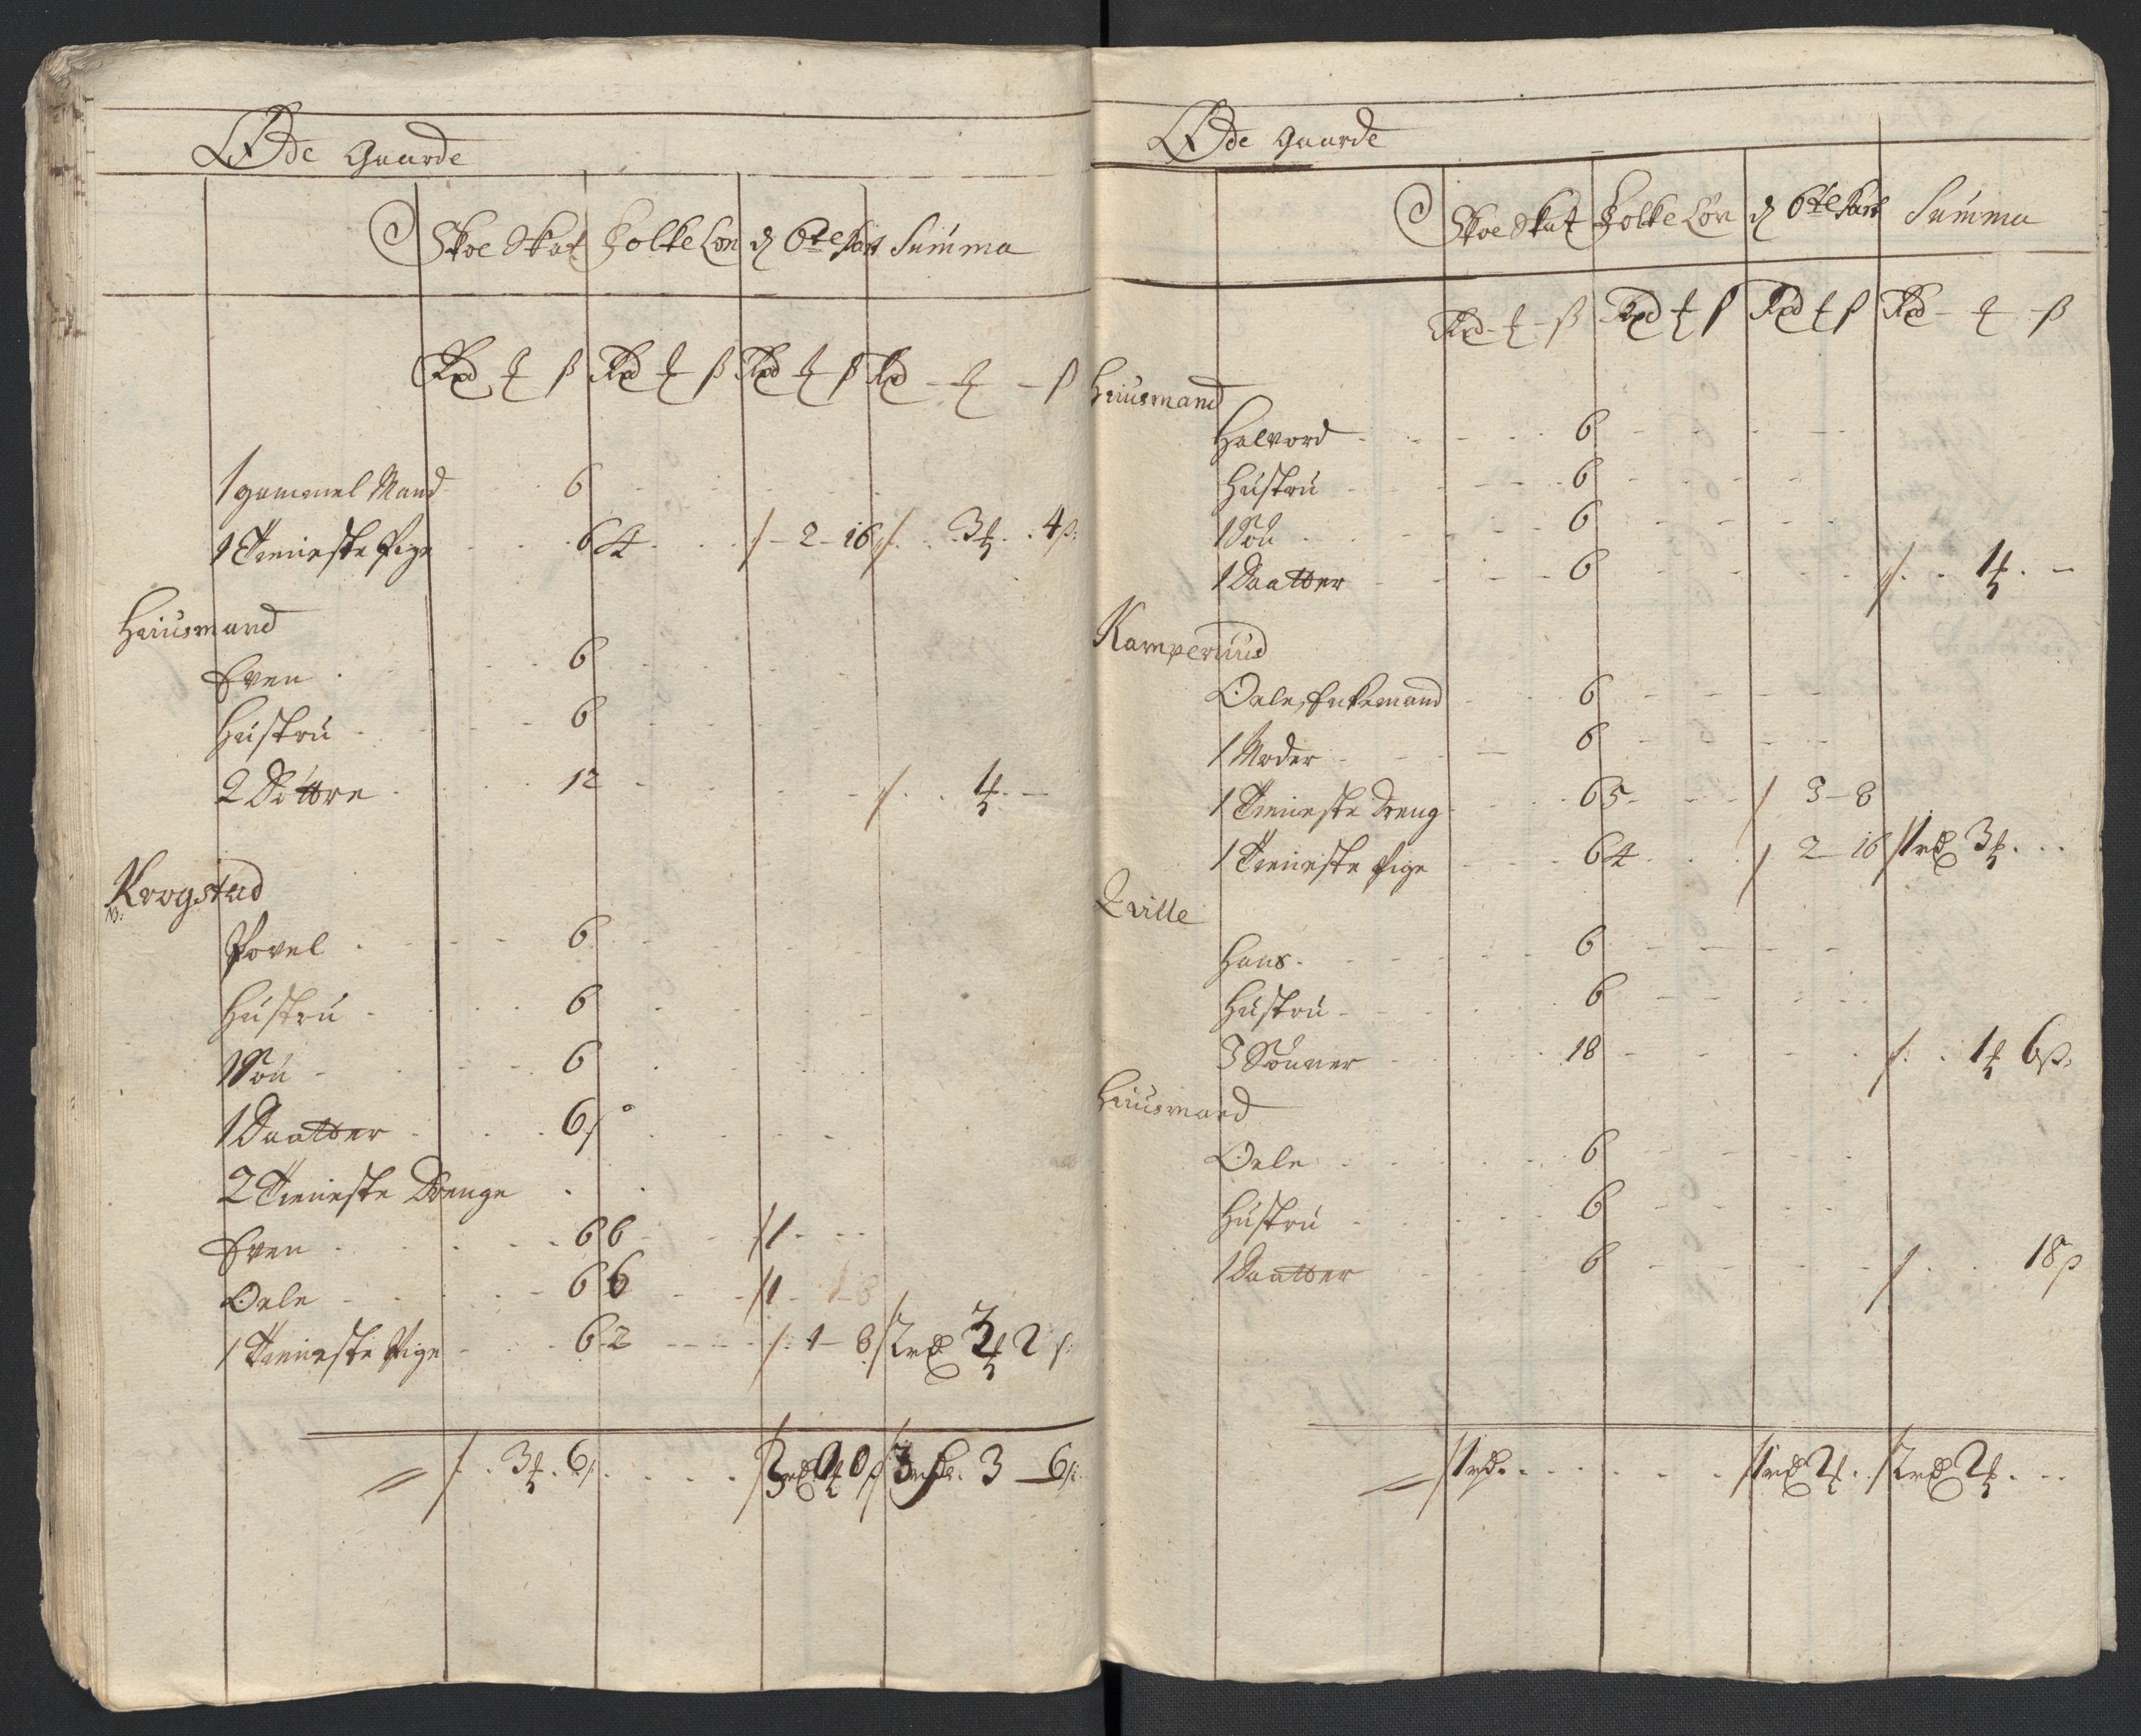 Øde Gaarde
Skoe Skat Folke Løn d 6te Part Summa
Rd ß Rd ß Rd ß Rd ß
1 gammel Mand 6
1 Tieneste Pige 6 4 2 - 16 3 4 ß
Huusmand
Even 6
Hustru 6
2 Döttre 12 1
Krogstad
Povel 6
Hustru 6
1 Sön 6
1 Daatter 6
2 Tieneste Drenge
Even 6 6 1
Oele 6 6 1
1 Tieneste Pige 6 2 1 - 8 2 rd 2
3 6 3 - 6
Øde Gaarde
Skoe Skat Folke Løn d 6te Part Summa
Rd ß Rd ß Rd ß Rd ß
Huusmand
Halvord 6
Hustru 6
1 Sön 6
1 Daatter 6 1
Kamperuud
Oele, Enkemand 6
1 Moder 6
1 Tieneste Dreng 6 5 3 - 8
1 Tieneste Pige 6 4 2 - 16 1 rd 3
Qville
Hans 6
Hustru 6
3 Sönner 18 1 6 ß
Huusmand
Oele 6
Hustru 6
1 Daatter 6 18 ß
1 rd 1 rd 2 2 rd 2